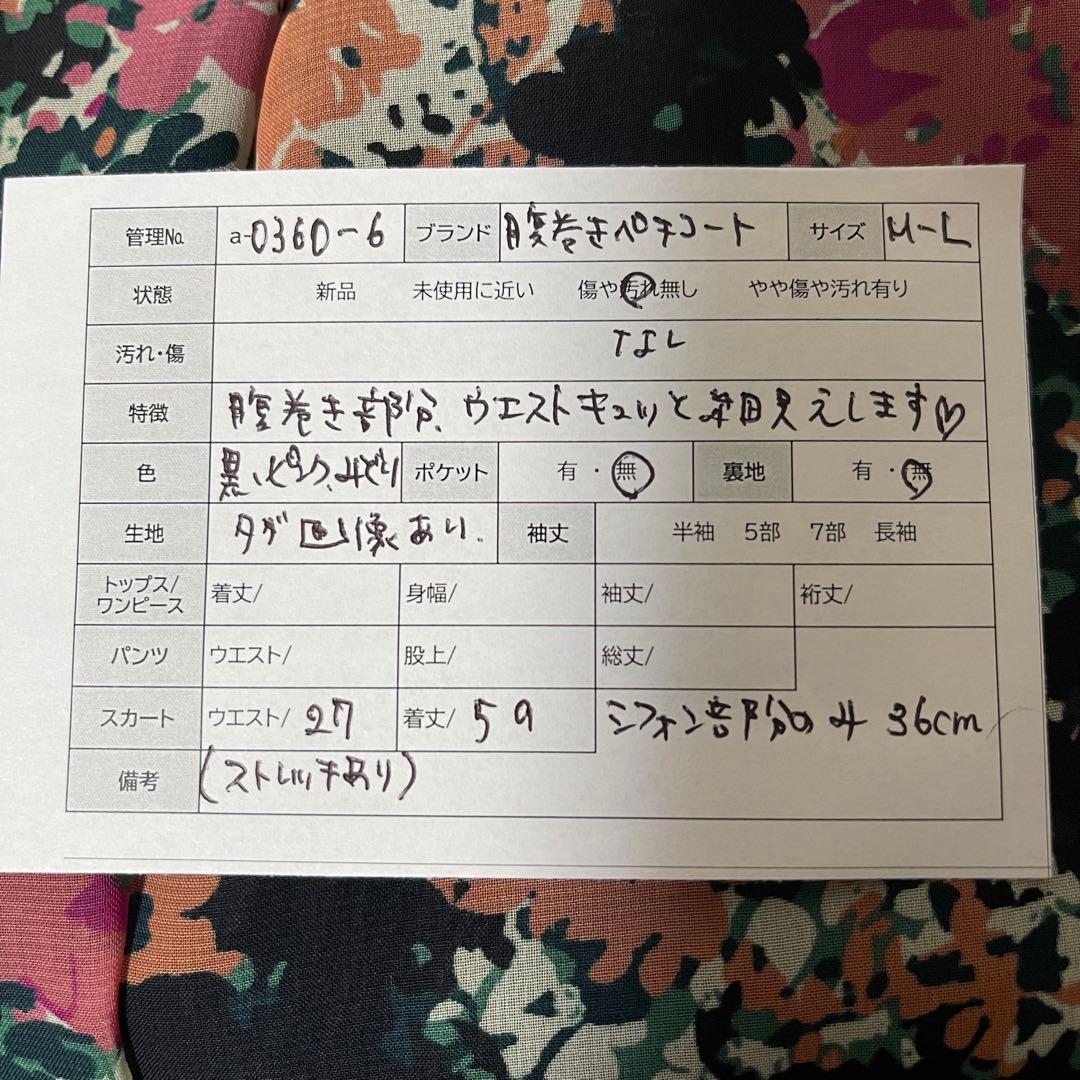 管理No. a-0360-6 ブランド 腹巻きペチコート サイズ M-L
状態 新品 未使用に近い 傷や汚れ無し やや傷や汚れ有り
汚れ・傷 なし
特徴 腹巻き部分、ウエストキュッと細見えします♡
色 黒、ピンク、みどり ポケット 有・無 裏地 有・無
生地 タグ画像あり。 袖丈 半袖 5部 7部 長袖
トップス/ワンピース 着丈/ 身幅/ 袖丈/ 裄丈/
パンツ ウエスト/ 股上/ 総丈/
スカート ウエスト/ 27 着丈/ 59 シフォン部分のみ 36cm
備考 (ストレッチあり)